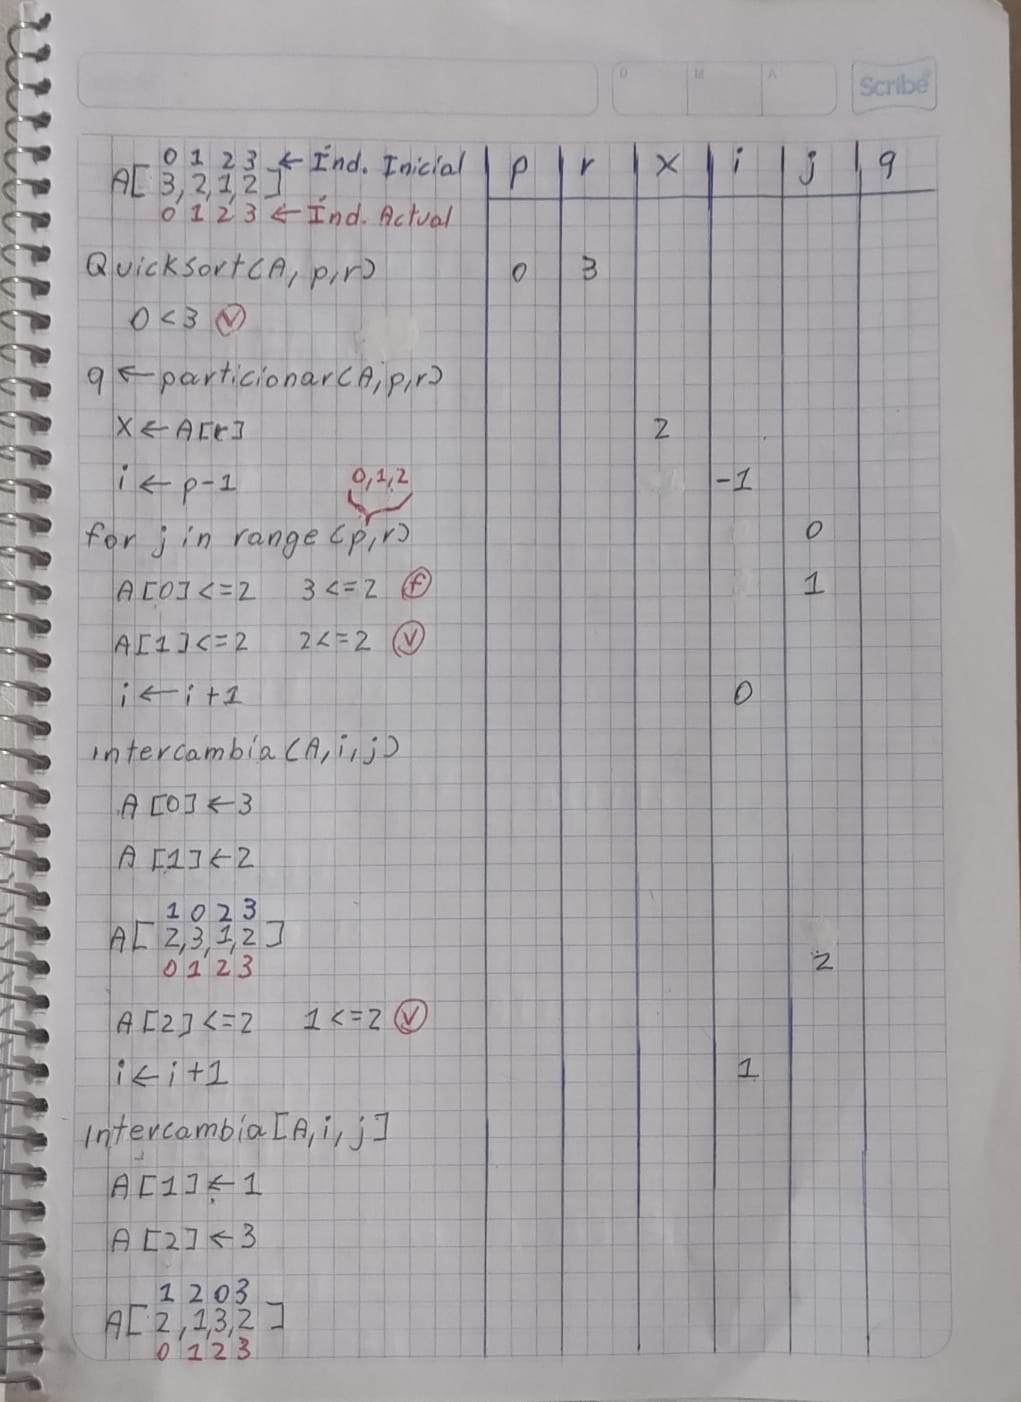 D M A Scribe
0 1 2 3 ← Índ. Inicial p r x i j q
A[ 3, 2, 1, 2 ]
0 1 2 3 ← Índ. Actual
Quicksort(A, p, r) 0 3
0 < 3 V
q ← particionar(A, p, r)
x ← A[r] 2
i ← p-1 0, 1, 2 -1
for j in range (p, r) 0
A[0] <= 2 3 <= 2 f 1
A[1] <= 2 2 <= 2 V
i ← i + 1 0
intercambia (A, i, j)
A [0] ← 3
A [1] ← 2
1 0 2 3
A[ 2, 3, 1, 2 ]
0 1 2 3 2
A [2] <= 2 1 <= 2 V
i ← i + 1 1
Intercambia [A, i, j]
A [1] ← 1
A [2] ← 3
1 2 0 3
A[ 2, 1, 3, 2 ]
0 1 2 3